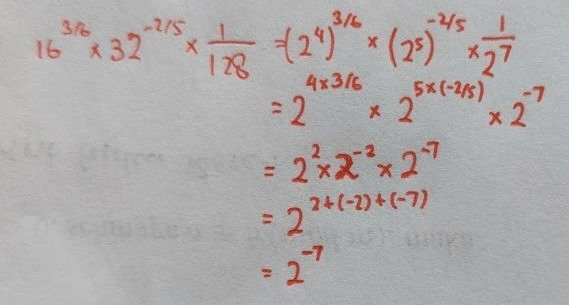 16^{3/6} × 32^{-2/5} × \frac{1}{128} = (2^4)^{3/6} × (2^5)^{-2/5} × \frac{1}{2^7}
= 2^{4×3/6} × 2^{5×(-2/5)} × 2^{-7}
= 2^2 × 2^{-2} × 2^{-7}
= 2^{2+(-2)+(-7)}
= 2^{-7}